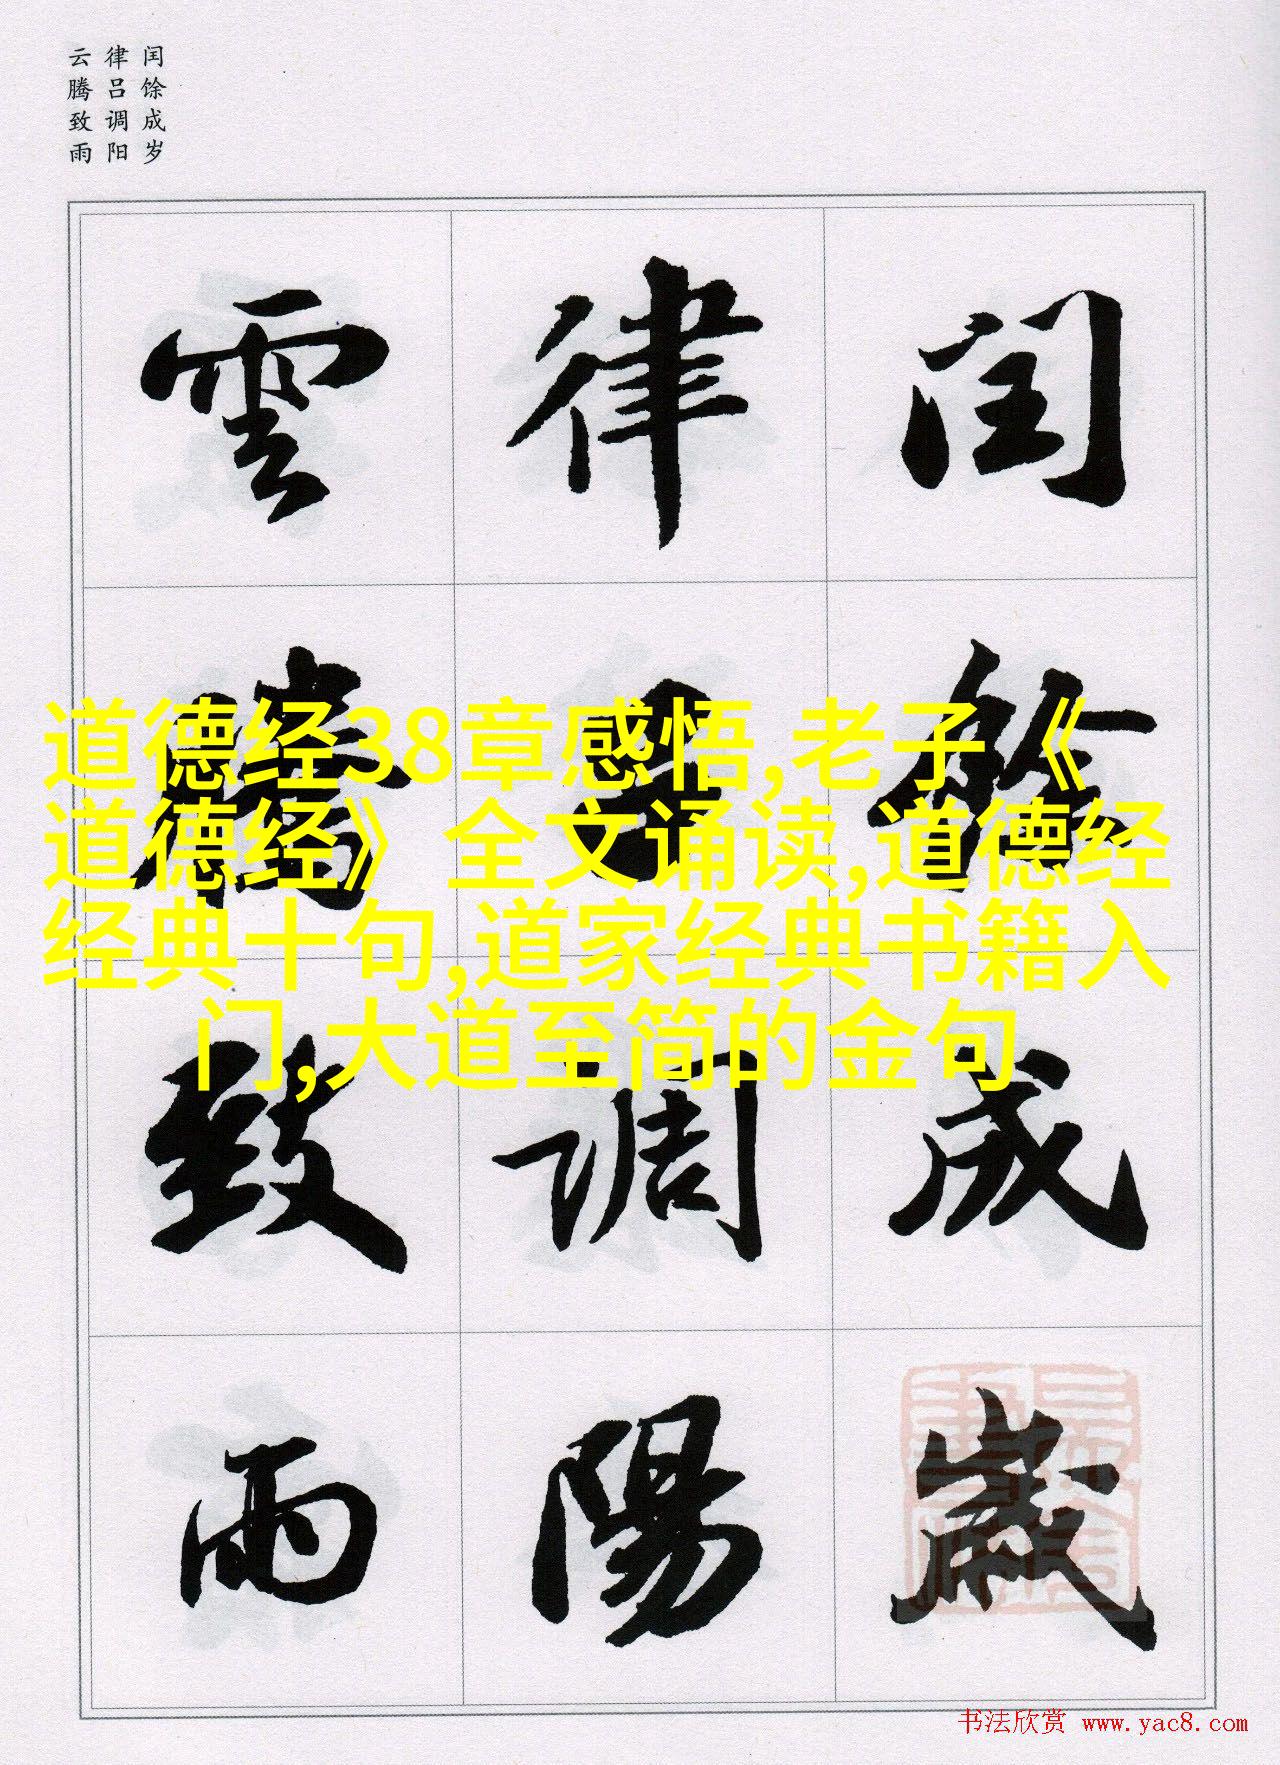 闰馀成岁
律吕调阳
云腾致雨
閏餘成歲
律呂調陽
雲騰致雨
道德经38章感悟,老子《
道德经》全文诵读,道德经
经典十句,道家经典书籍入
门,大道至简的金句
书法欣赏 www.yac8.com